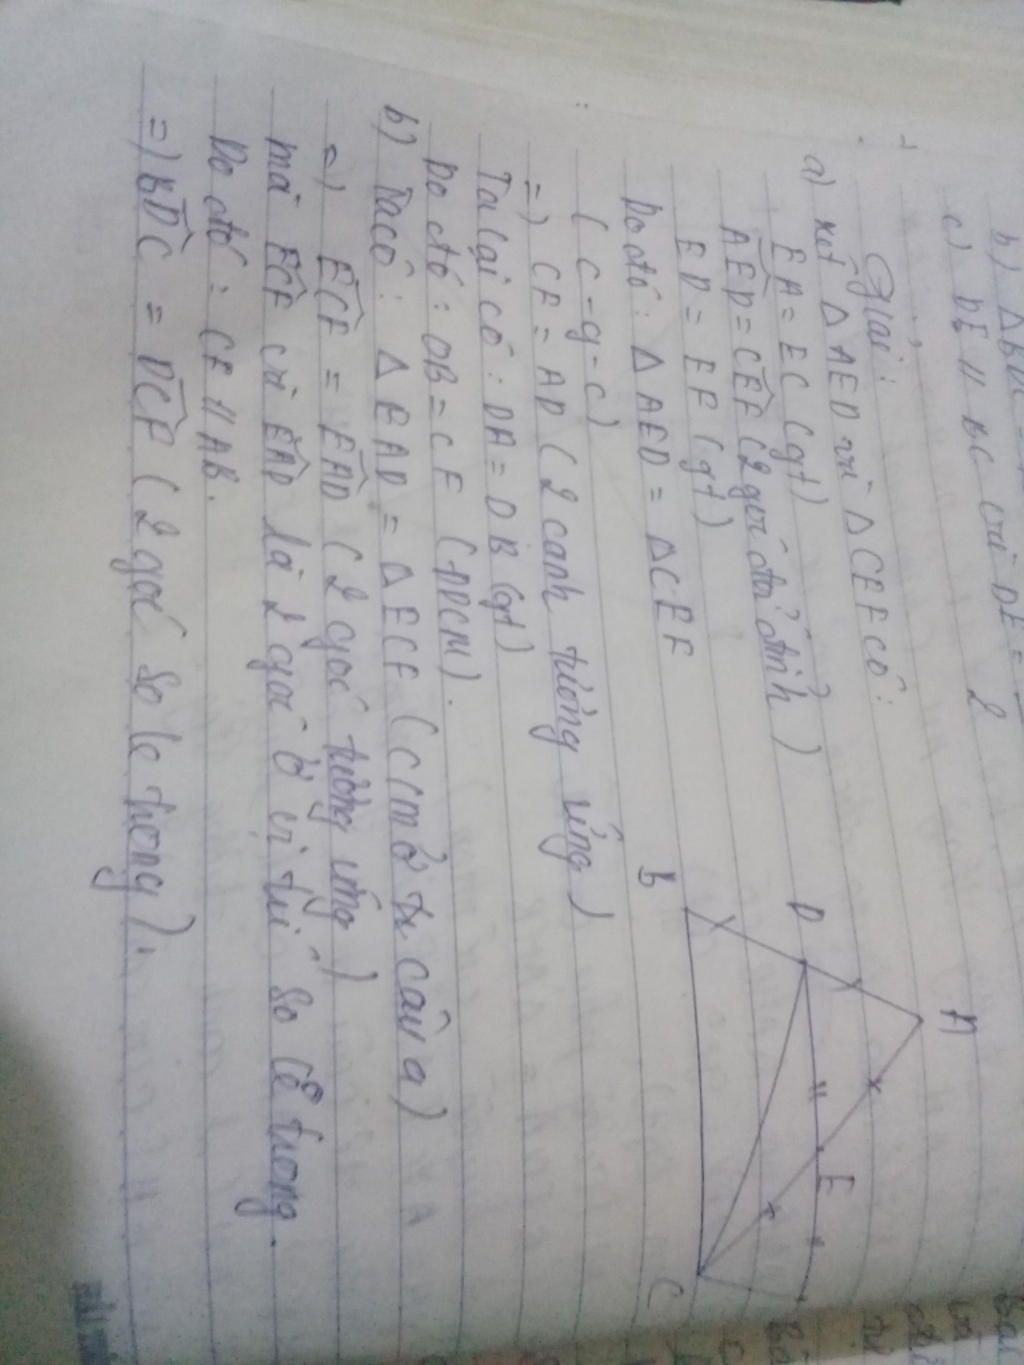 b) ΔBDC
c) DE // BC và DE =
2
Giải:
a) xét Δ AED và Δ CEF có:
EA = EC (gt)
AED = CEF (2 góc đối đỉnh)
ED = EF (gt)
Do đó: Δ AED = Δ CEF
(c-g-c)
=) CF = AD (2 cạnh tương ứng)
Ta lại có: DA = DB (gt)
Do đó: DB = CF (ĐPCM).
b) Ta có: Δ EAD = Δ ECF (ccm ở tr câu a)
=) ECF = EAD (2 góc tương ứng)
mà ECF và EAD là 2 góc ở vị trí so lê trong.
Do đó: CF // AB.
=) BDC = DCF (2 góc so le trong).
A
D
E
B
C